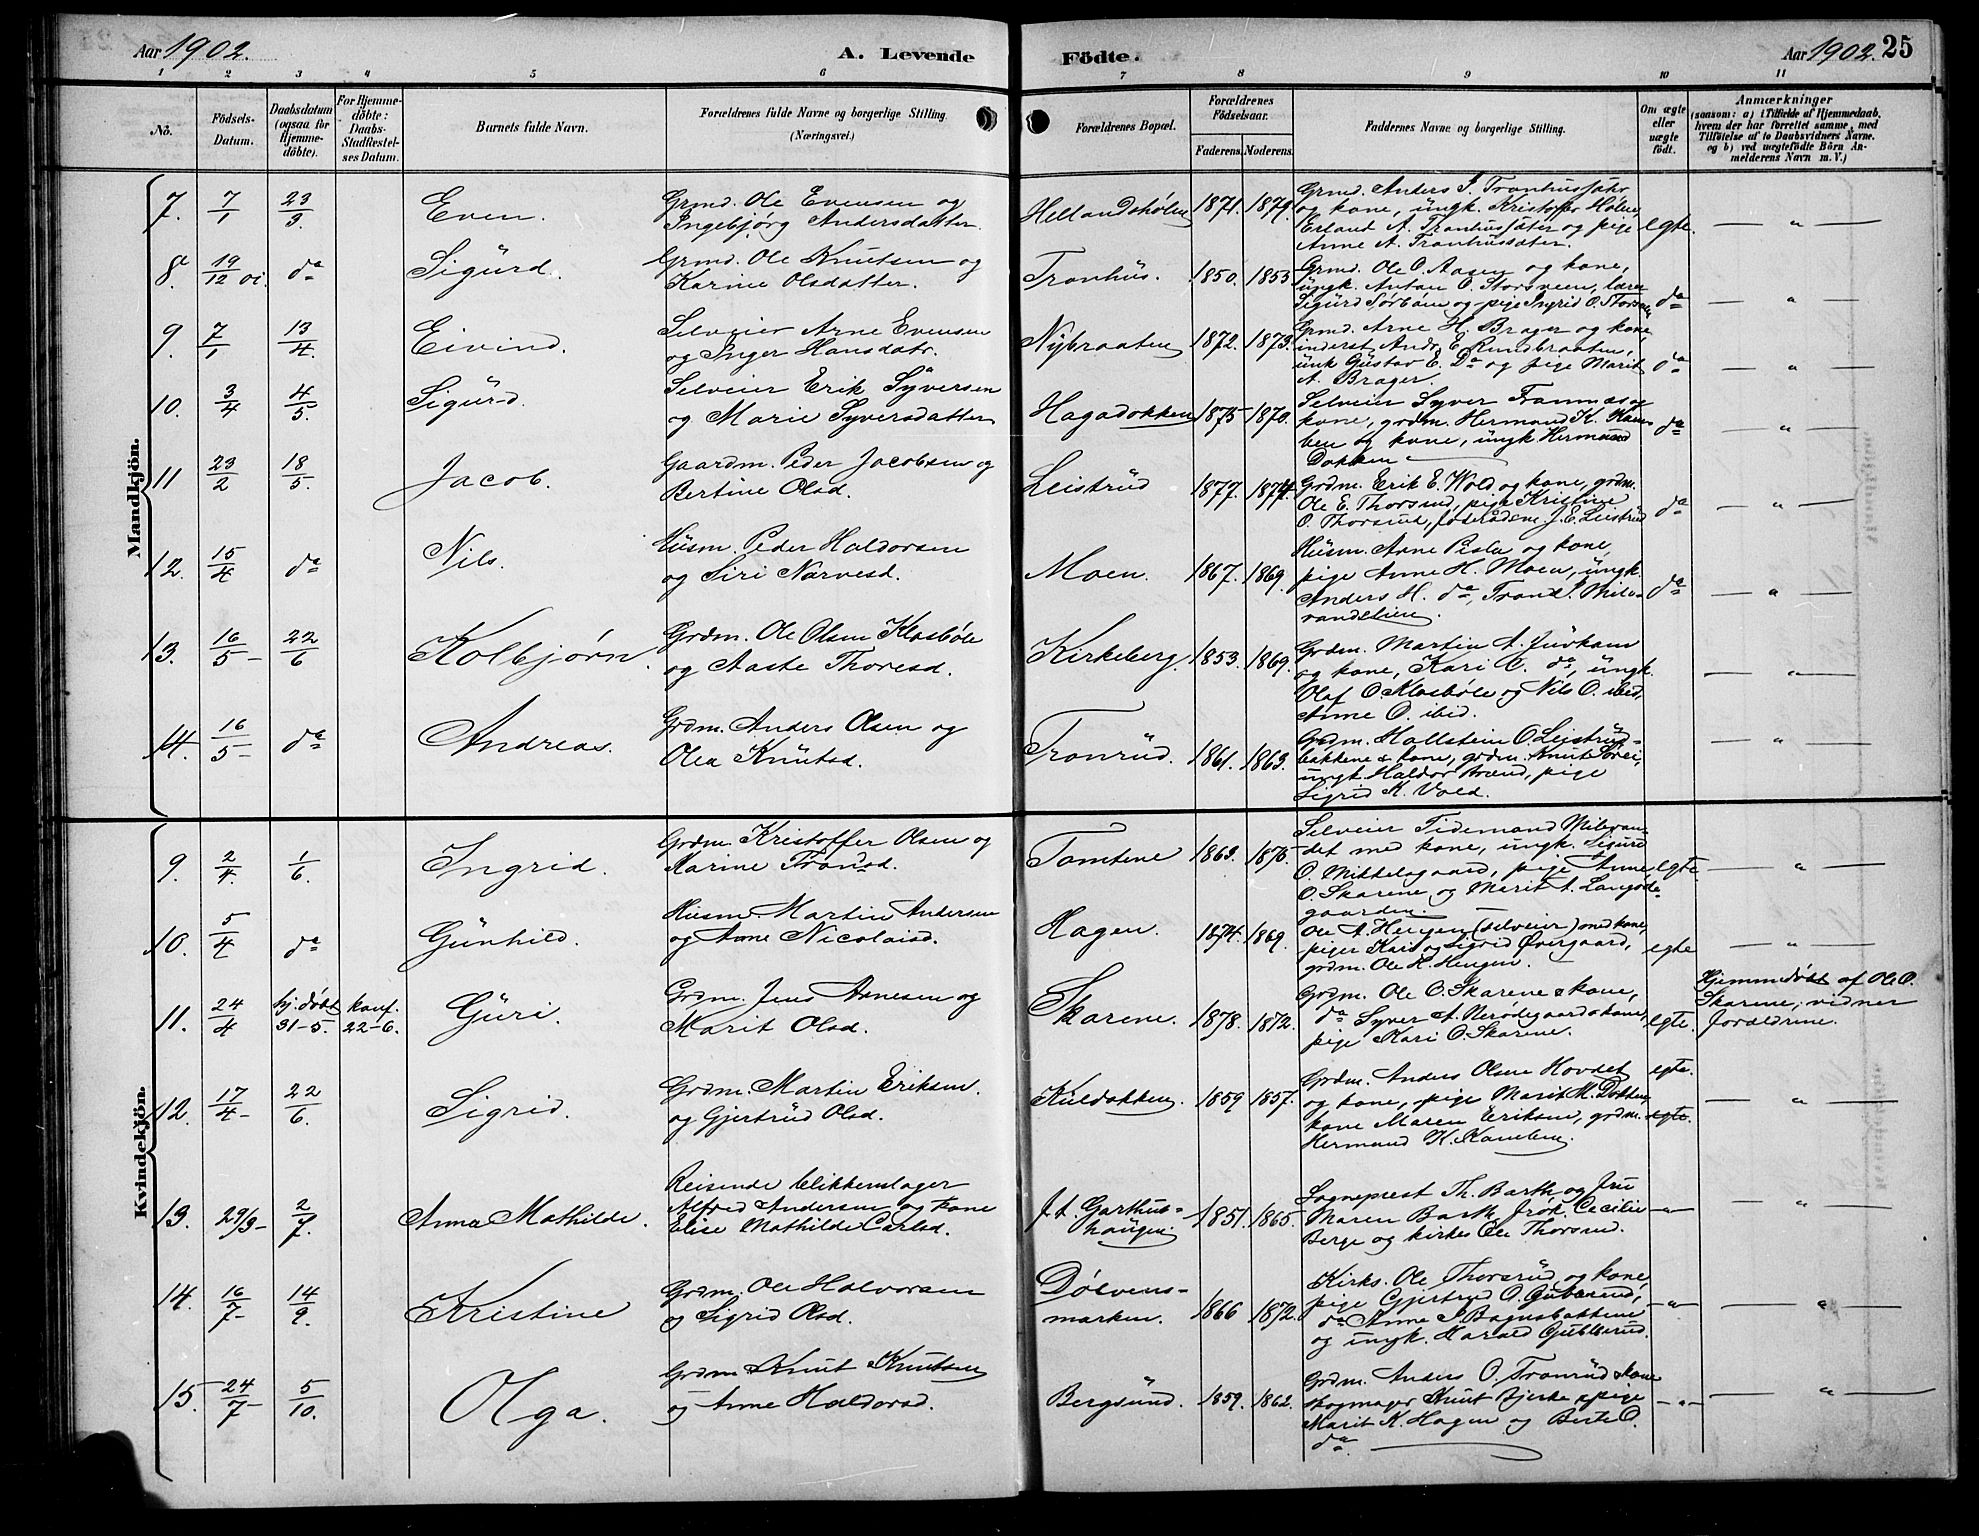 Aar 1902. A. Levende Födte. Aar 1902. 25
1 2 3 4 5 6 7 8 9 10 11
No.
Födsels-Datum.
Daabsdatum (ogsaa for Hjemme-döbte).
For Hjemme-döbte: Daabs-Stadfæstel-ses Datum.
Barnets fulde Navn.
Forældrenes fulde Navne og borgerlige Stilling. (Næringsvei.)
Forældrenes Bopæl.
Forældrenes Födselsaar.
Faderens. Moderens.
Faddernes Navne og borgerlige Stilling.
Om ægte eller uægte födt.
Anmærkninger
(saasom: a) i Tilfælde af Hjemmedaab, hvem der har forrettet samme, med Tilföielse af to Daabsvidners Navne. og b) ved uægtefödte Börn An-melderens Navn m. V.)
Mandkjön.
7. 7/1 23/3 Even. Grmd. Ole Evensen og
Ingebjørg Andersdatter. Hellandshølen 1871. 1879.
Grmd. Anders I. Tronhussæhr
og kone, ungk. Kristoffer Hølen,
Erland A. Tronhussæter og pige
Anne A. Tronhussæter.
egte. — " —
8. 19/12 01. da Sigurd. Grmd. Ole Knutsen og
Karine Olsdatter. Tronhus. 1850. 1853
Grmd. Ole O. Aasen og kone,
ungk. Anton O. Storsveen, lærer
Sigurd Sørbøen og pige Ingrid O. Storsveen
da — " —
9. 7/1 13/4. Eivind. Selveier Arne Evensen
og Inger Hansdatr. Nybraaten 1872. 1873.
Grmd. Arne H. Brager og kone,
inderst Andr. E. Rundbraaten,
unk Gustav E. Do og pige Marit
A. Brager.
da — " —
10. 3/4 4/5. Sigurd. Selveier Erik Syversen
og Marie Syversdatter Hagadokken 1875 1870.
Selveier Syver Framnæs og
kone, grdm. Hermand K. Kam-
ben og kone, ungk Hermand
Dokken
da — " —
11 23/2 18/5. Jacob. Gaardm. Peder Jacobsen og
Bertine Olsd. Leistrud 1877. 1874.
Grdm. Erik E. Wold og kone, grdm.
Ole E. Thorsrud, pige Kristine
O. Thorsrud, J. E. Leistrud
da — " —
12. 15/4 da Nils. Husm. Peder Haldorsen
og Siri Narvesd. Moen. 1867. 1869.
Husm. Arne Pisla og kone,
pige Anne H. Moen, ungk.
Anders H. da, Trond P. Mile-
randelien.
da — " —
13. 16/5 22/6 Kolbjørn. Grdm. Ole Olsen Klasbøle
og Aaste Thoresd. Kirkeberg 1853. 1869.
Grdm. Martin A. Juvkam
og kone, Kari O. da, ungk.
Olaf O. Klasbøle og Nils O. ibid,
Anne O. ibid.
— " —
14. 16/5 da Andreas. Grdm. Anders Olsen og
Olea Knutsd. Tronrud. 1861. 1863.
Grdm. Hallstein O. Leistrud-
bakkene & kone, grdm. Knut Sørei,
ungk. Haldor Brænd, pige
Sigrid K. Vold.
— " —
Kvindekjön.
9. 2/4. 1/6. Ingrid. Grdm. Kristoffer Olsen og
Karine Tronsd. Tomtene 1863. 1876.
Selveier Tidemand Mileran-
det med kone, ungk. Sigurd
O. Mikkelsgaard, pige Anne
O. Skarene og Marit A. Langøde-
gaarden.
egte — " —
10. 5/4 da Gunhild. Husm. Martin Andersen
og Anne Nicolaisd. Hagen. 1874. 1869.
Ole A. Hengen (selveier) med kone,
piger Kari og Sigrid Øvergaard,
grdm. Ole H. Hengen.
egte — " —
11. 24/4 hj. døbt 31-5. konf. 22-6. Guri. Grdm. Jens Arnesen og
Marit Olsd. Skarene. 1878. 1872.
Grdm. Ole O. Skarene & kone,
da Syver A. Nerødegaard & kone,
pige Kari O. Skarene.
egte.
Hjemmedøbt af Ole O.
Skarene; vidner
Forældrene.
12. 17/4 22/6. Sigrid. Grdm. Martin Eriksen.
og Gjertrud Olsd. Kuldokken. 1859 1857.
Grdm. Anders Olsen Hovdet
og kone, pige Marit M. Dokken,
kone Maren Eriksen, grdm.
Hermand K. Kamben.
egte.
egte. — " —
13. 29/3 2/7. Anna Mathilde. Reisende blikkenslager
Alfred Andersen og kone
Elise Mathilde Carlsd. f. t. Garthus-
haugen. 1851. 1865.
Sogneprest Th. Barth og Fru
Maren Barth, Frøk. Cecilie
Berge og kirkes Ole Thorsrud.
— " — — " —
14. 16/7 14/9. Kristine Grdm. Ole Halvorsen
og Sigrid Olsd. Dølvens-
marken. 1866 1872.
Kirks. Ole Thorsrud og kone,
pige Gjertrud O. Gubberud,
da Anne S. Bagnsbakkene
og ungk. Harald Gubberud.
— " — — " —
15. 24/7 5/10. Olga. Grdm. Knut Knutsen
og Anne Haldorsd. Bergsund. 1859. 1862.
Grdm. Anders O. Tronrud & kone
Knut Bjerke & pige
Marit K. Hagen og Berte O.
da
— " — — " —